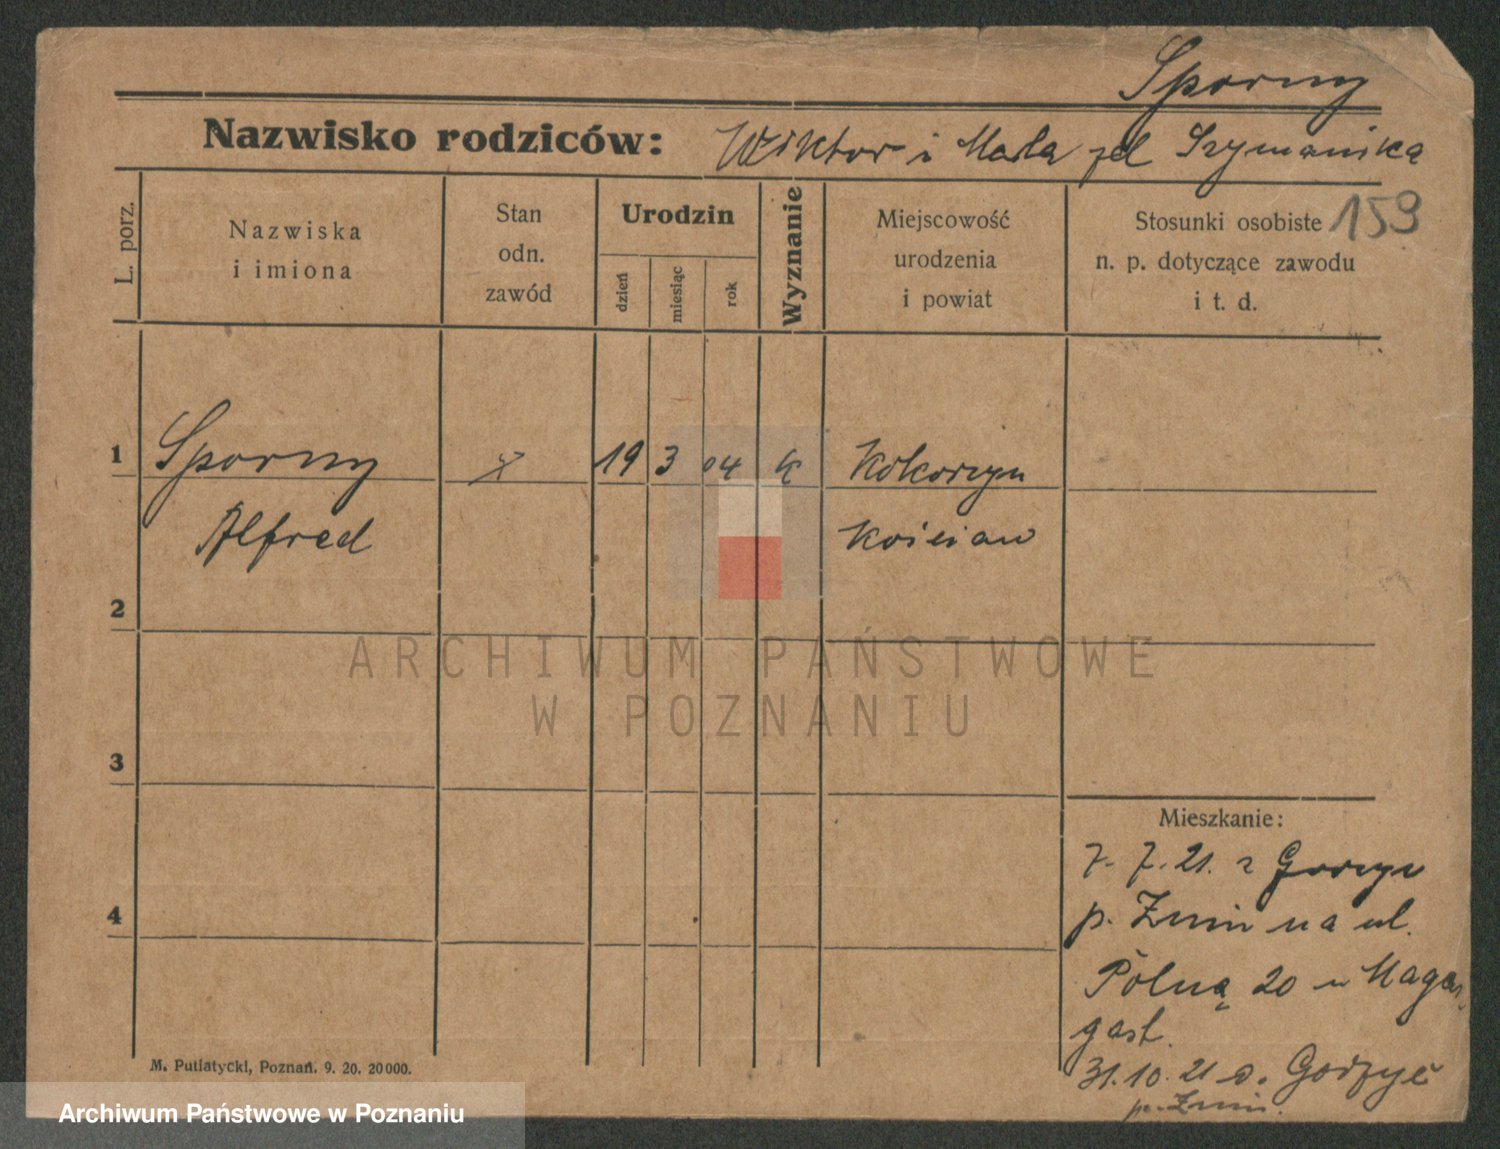 Sporny
Nazwisko rodziców: Wiktor i Marla zd Szymaniską
159
L. porz.
Nazwiska
i imiona
Stan
odn.
zawód
Urodzin
dzień
miesiąc
rok
Wyznanie
Miejscowość
urodzenia
i powiat
Stosunki osobiste
n. p. dotyczące zawodu
i t. d.
1 Sporny X 19 3 04 k Kokorzyn
Alfred Kościan
2
3
4
Mieszkanie:
7. 7. 21. z Gorzyc
p. Żnin na ul.
Polną 20 u
gast.
31.10.21 d. Gorzyc
p. Żnin.
M. Putiatycki, Poznań. 9. 20. 20000.
ARCHIWUM PAŃSTWOWE
W POZNANIU
Archiwum Państwowe w Poznaniu